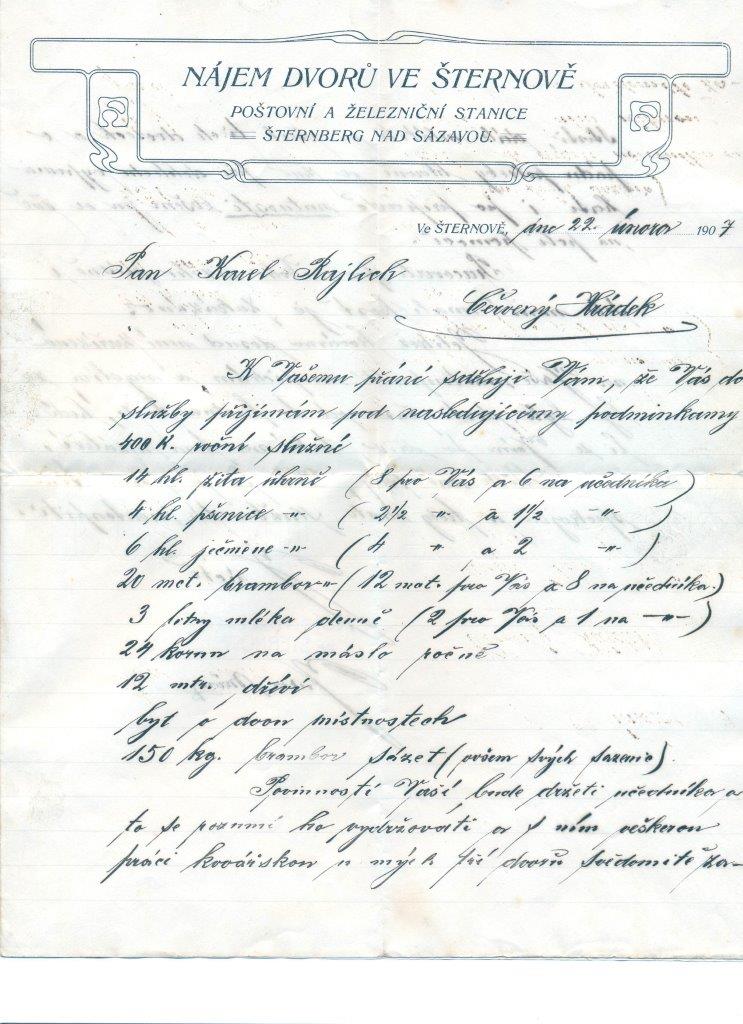 NÁJEM DVORŮ VE ŠTERNOVĚ
POŠTOVNÍ A ŽELEZNIČNÍ STANICE
ŠTERNBERG NAD SÁZAVOU.
Ve ŠTERNOVĚ, dne 22. února 1907
Pan Karel Rajlich
Červený Hrádek
K Vašemu přání sděluji Vám, že Vás do
služby přijímám pod následujícími podmínkamy
400 K. roční služné
14 hl. žita úhrně (8 pro Vás a 6 na učedníka)
4 hl. pšenice -"- (2 1/2 " a 1 1/2 -"-)
6 hl. ječmene -"- (4 " a 2 -"-)
20 met. brambor -"- (12 met. pro Vás a 8 na učedníka.)
3 litry mléka denně (2 pro Vás a 1 na -"-)
24 korun na máslo ročně
12 mtr. dříví
byt o dvou místnostech
150 kg. brambor sázet (ovšem svých sazenic).
Povinností Vaší bude držeti učedníka a
to se rozumí ho vydržovati a s ním veškerou
práci kovářskou u mých tří dvorů svědomitě za-